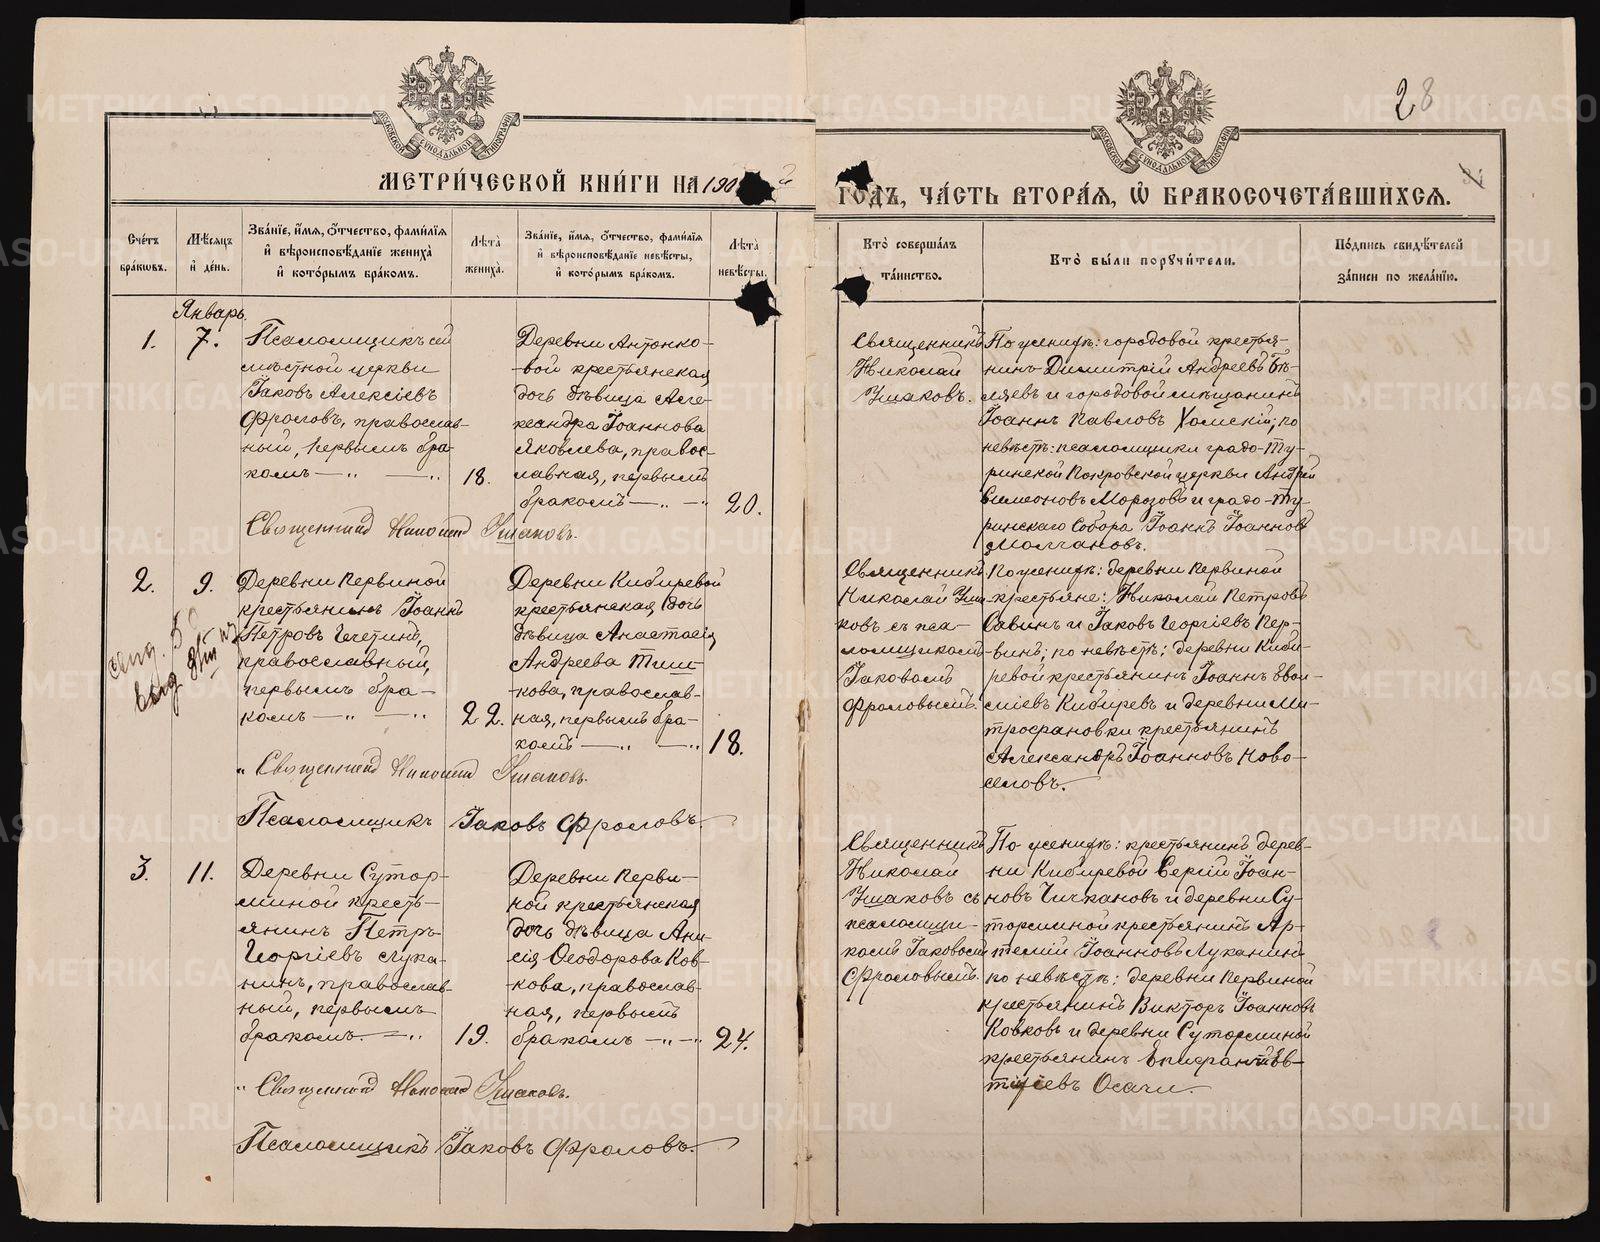 28
МОСКОВСКОЙ СѴНОДАЛЬНОЙ ТИПОГРАФІИ
МОСКОВСКОЙ СѴНОДАЛЬНОЙ ТИПОГРАФІИ
МЕТРИ́ЧЕСКОЙ КНИ́ГИ НА 190
ГОДЪ, ЧА́СТЬ ВТОРА́Я, Ѽ БРАКОСОЧЕТА́ВШИХСЯ.
Сче́тъ бра́ковъ.
Мѣ́сяцъ и҆ де́нь.
Зва́нїе, и҆́мя, ѻ҆́тчество, фами́лїя и҆ вѣроисповѣ́данїе жениха̀ и҆ кото́рымъ бра́комъ.
Лѣ́та жениха̀.
Зва́нїе, и҆́мя, ѻ҆́тчество, фами́лїя и҆ вѣроисповѣ́данїе невѣ́сты, и҆ кото́рымъ бра́комъ.
Лѣ́та невѣ́сты.
Кто̀ соверша́лъ та́инство.
Кто̀ бы́ли порꙋчи́тели.
По́дпись свидѣ́телей за́писи по жела́нїю.
Январь.
1.
7.
Псаломщикъ сей
мѣстной церкви
Іаковъ Алексіевъ
Фроловъ, православ-
ный, первымъ бра-
комъ
18.
Деревни Антоно-
вой крестьянская
дочь дѣвица Але-
ксандра Іоаннова
Яковлева, правос-
лавная, первымъ
бракомъ
20.
Священникъ
Николай
Ушаковъ.
По женихѣ: городовой крестья-
нинъ Димитрій Андреевъ Бѣ-
ляевъ и городовой мѣщанинъ
Іоаннъ Павловъ Хомскій; по
невѣстѣ: псаломщики градо-Ту-
ринской Покровской церкви Андрей
Симеоновъ Морозовъ и градо-Ту-
ринскаго Собора Іоаннъ Іоанновъ
Молчановъ.
Священникъ Николай Ушаковъ.
2.
9.
Деревни Первиной
крестьянинъ Іоаннъ
Петровъ Щетинъ,
православный,
первымъ бра-
комъ
22.
Деревни Кибиревой
крестьянская дочь
дѣвица Анастасія
Андреева Тиш-
кова, православ-
ная, первымъ бра-
комъ
18.
Священникъ
Николай Уша-
ковъ съ пса-
ломщикомъ
Іаковомъ
Фроловымъ.
По женихѣ: деревни Первиной
крестьяне: Николай Петровъ
Савинъ и Іаковъ Георгіевъ Пер-
винъ; по невѣстѣ: деревни Киби-
ревой крестьянинъ Іоаннъ Евдо-
Кибиревъ и деревни Ми-
трофановки крестьянинъ
Александръ Іоанновъ Ново-
селовъ.
Священникъ Николай Ушаковъ.
Псаломщикъ Іаковъ Фроловъ.
3.
11.
Деревни Сутор-
миной кресть-
янинъ Петръ
Георгіевъ Лука-
нинъ, православ-
ный, первымъ
бракомъ
19.
Деревни Перви-
ной крестьянская
дочь дѣвица Ани-
сія Ѳеодорова Ков-
кова, православ-
ная, первымъ
бракомъ
24.
Священникъ
Николай
Ушаковъ съ
псаломщи-
комъ Іаковомъ
Фроловымъ.
По женихѣ: крестьянинъ дерев-
ни Кибиревой Сергій Іоан-
новъ Чичкановъ и деревни Су-
торминой крестьянинъ Ар-
темій Іоанновъ Луканинъ
по невѣстѣ: деревни Первиной
крестьянинъ Викторъ Іоанновъ
Ковковъ и деревни Суторминой
крестьянинъ Епифантій Ев-
Осачи.
Священникъ Николай Ушаковъ.
Псаломщикъ Іаковъ Фроловъ.
METRIKI.GASO-URAL.RU